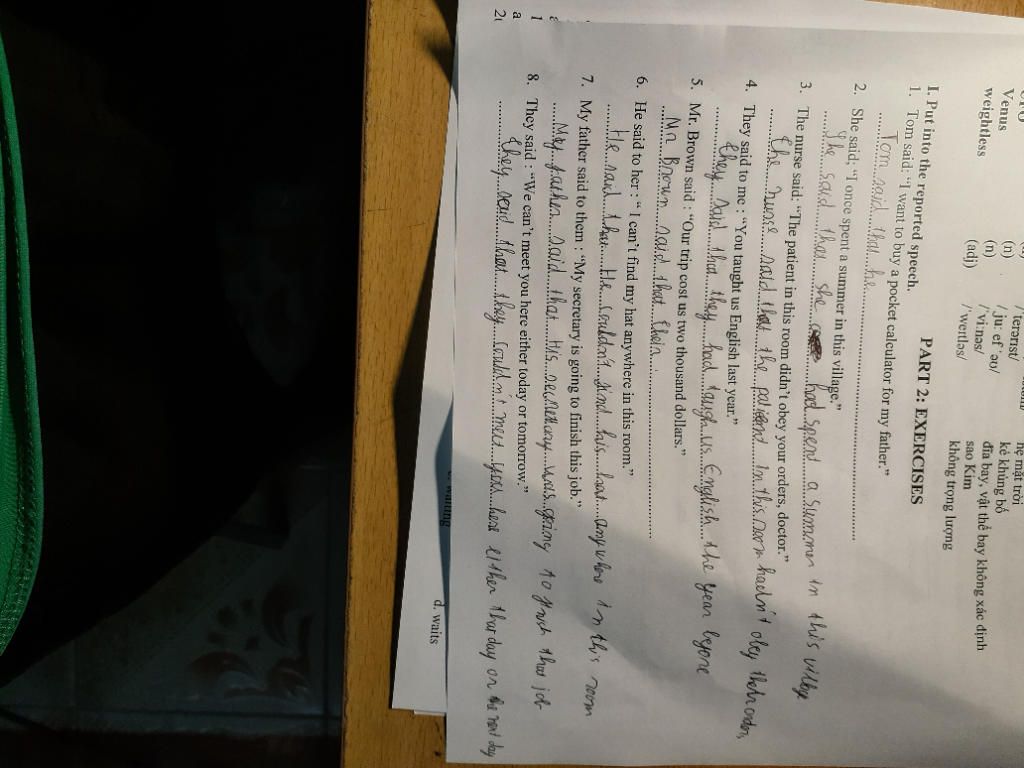 UFO (n) /ˌju: ef ˈəʊ/ đĩa bay, vật thể bay không xác định
Venus (n) /ˈvi:nəs/ sao Kim
weightless (adj) /ˈweɪtləs/ không trọng lượng
/ˈterərɪst/ kẻ khủng bố
hệ mặt trời
PART 2: EXERCISES
I. Put into the reported speech.
1. Tom said: “I want to buy a pocket calculator for my father.”
Tom said that he
2. She said: “I once spent a summer in this village.”
She said that she had spend a summer in this village
3. The nurse said: “The patient in this room didn’t obey your orders, doctor.”
the nurse said that the patiend in this room hadn't obey orders,
4. They said to me : “You taught us English last year.”
they said that they had taugh us English the year before
5. Mr. Brown said : “Our trip cost us two thousand dollars.”
Mr Brown said that their
6. He said to her : “ I can’t find my hat anywhere in this room.”
He said that He couldn't find his hat anywhere in this room
7. My father said to them : “My secretary is going to finish this job.”
My father said that His secretary was going to finish that job
8. They said : “We can’t meet you here either today or tomorrow.”
they said that they couldn't meet you here either that day or the next day
1
a
c. waiting
d. waits